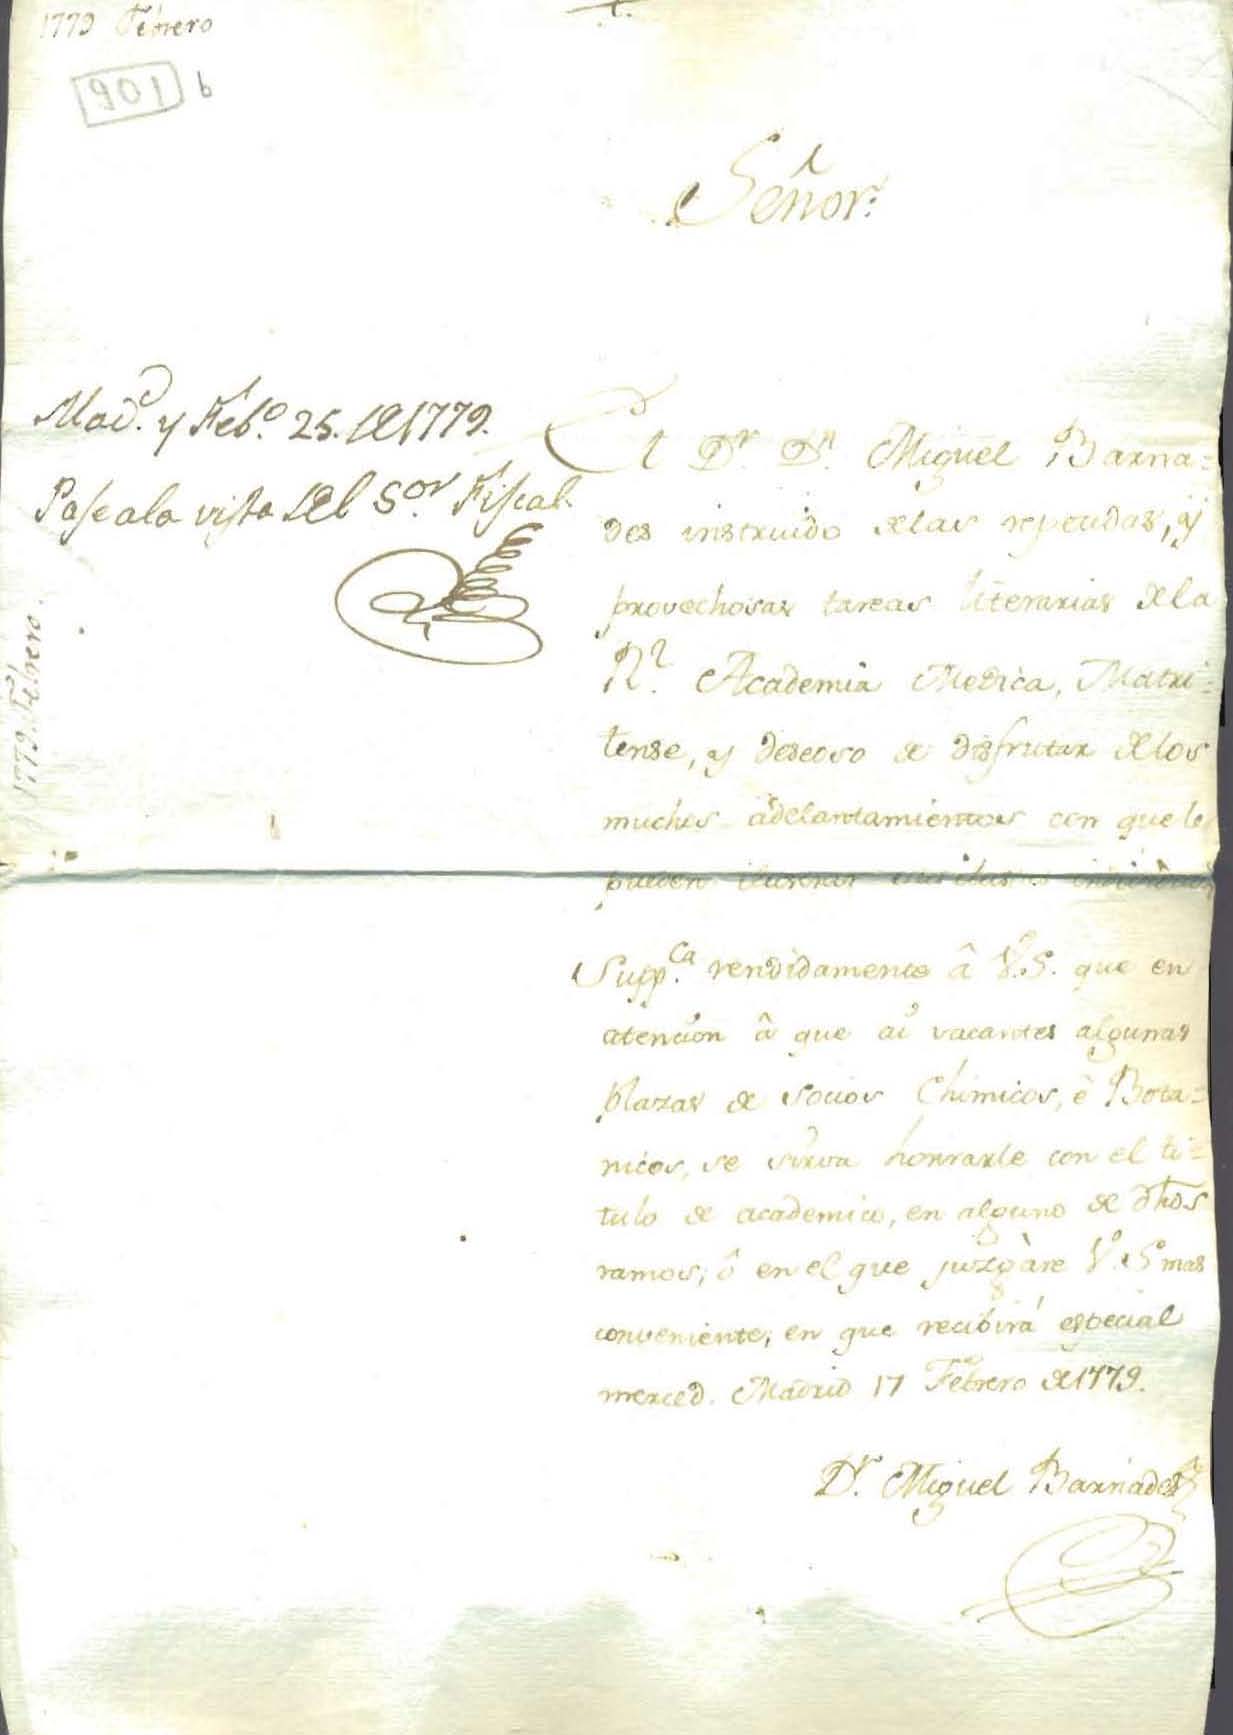 1779 Febrero
901 b
Señor.
Mad.d y Feb.o 25. de 1779.
Pase a la vista del S.or Fiscal.
El D.r D.n Miguel Barna=
des instruido de las repetidas, y
provechosas tareas literarias de la
R.l Academia Medica, Matri=
tense, y deseoso de disfrutar de los
muchos adelantamientos con que le
pueden ilustrar sus
Supp.ca rendidamente â V.S. que en
atencion â que ai vacantes algunas
plazas de socios Chimicos, ê Bota=
nicos, se sirva honrrarle con el ti=
tulo de academico, en alguno de dhos
ramos, ô en el que juzgàre V.S. mas
conveniente; en que recibirá especial
merced. Madrid 17 Febrero de 1779.
D.r Miguel Barnades
1779. Febrero.